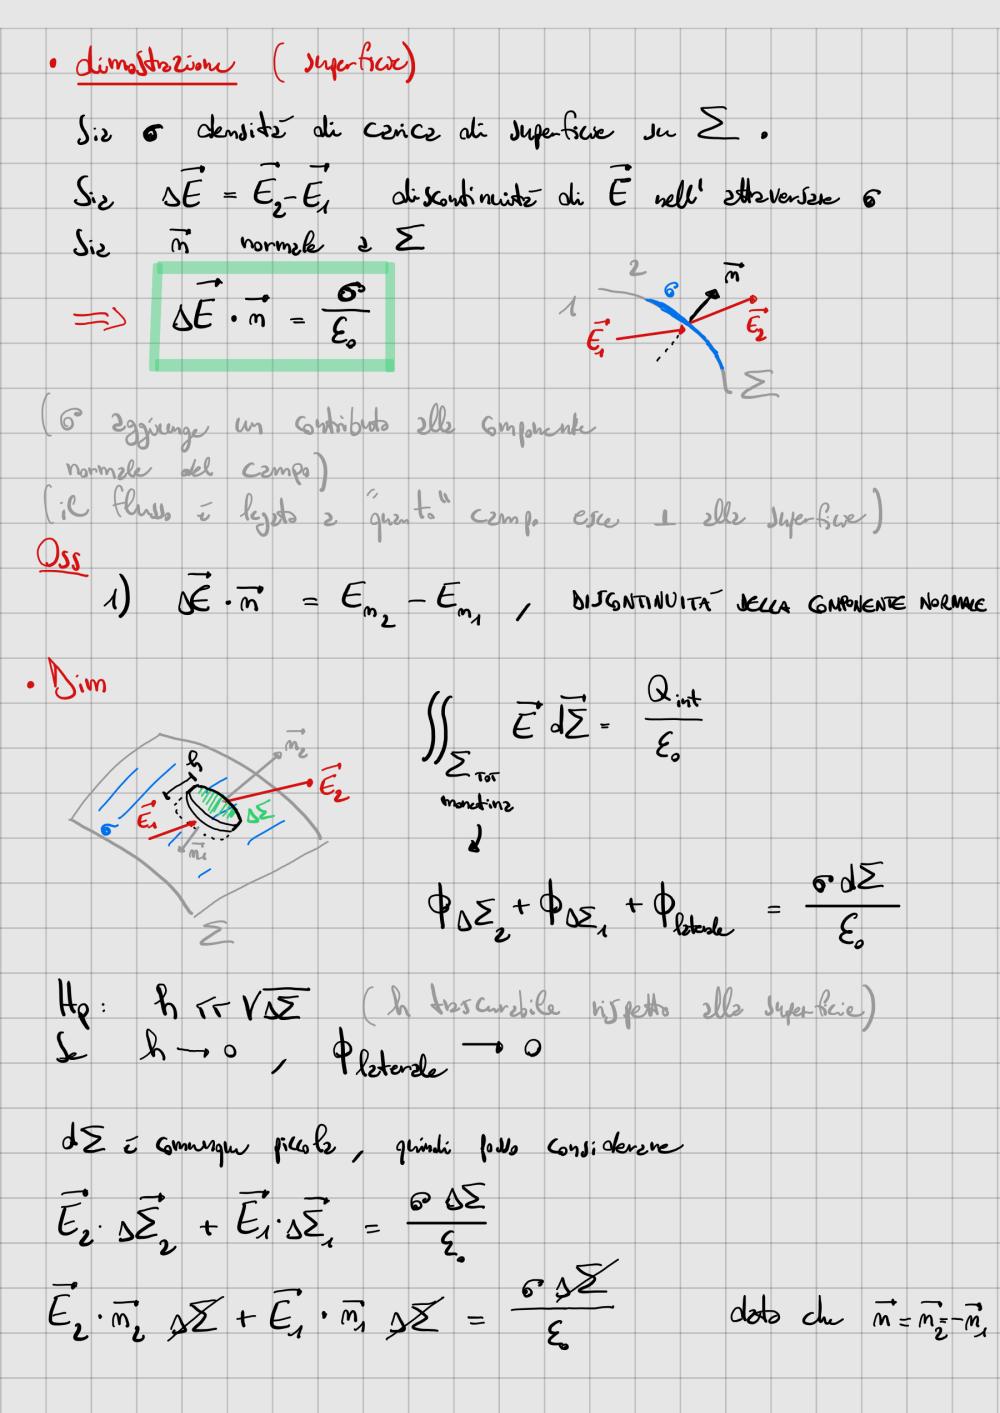 • dimostrazione (superficie)
Sia σ densità di carica di superficie su Σ.
Sia ΔE⃗ = E⃗₂ - E⃗₁ discontinuità di E⃗ nell' attraversare σ
Sia n⃗ normale a Σ
⟹ ΔE⃗ · n⃗ = σ/ε₀
1 2 σ n⃗ E⃗₁ E⃗₂ Σ
(σ aggiunge un contributo alla componente
normale del campo)
(il flusso è legato a "quanto" campo esce ⊥ alla superficie)
Oss
1) ΔE⃗ · n⃗ = E_n₂ - E_n₁ , DISCONTINUITÀ DELLA COMPONENTE NORMALE
• Dim
∬_Σ_TOT E⃗ dΣ⃗ = Q_int/ε₀
monetina
↓
h n⃗₂ E⃗₂ E⃗₁ ΔΣ σ n⃗₁ Σ
ϕ_ΔΣ₂ + ϕ_ΔΣ₁ + ϕ_laterale = σ dΣ/ε₀
Hp: h << √ΔΣ (h trascurabile rispetto alla superficie)
Se h → 0 , ϕ_laterale → 0
dΣ è comunque piccola, quindi posso considerare
E⃗₂ · ΔΣ⃗₂ + E⃗₁ · ΔΣ⃗₁ = σ ΔΣ/ε₀
E⃗₂ · n⃗₂ ΔΣ + E⃗₁ · n⃗₁ ΔΣ = σ ΔΣ/ε₀ dato che n⃗ = n⃗₂ = -n⃗₁